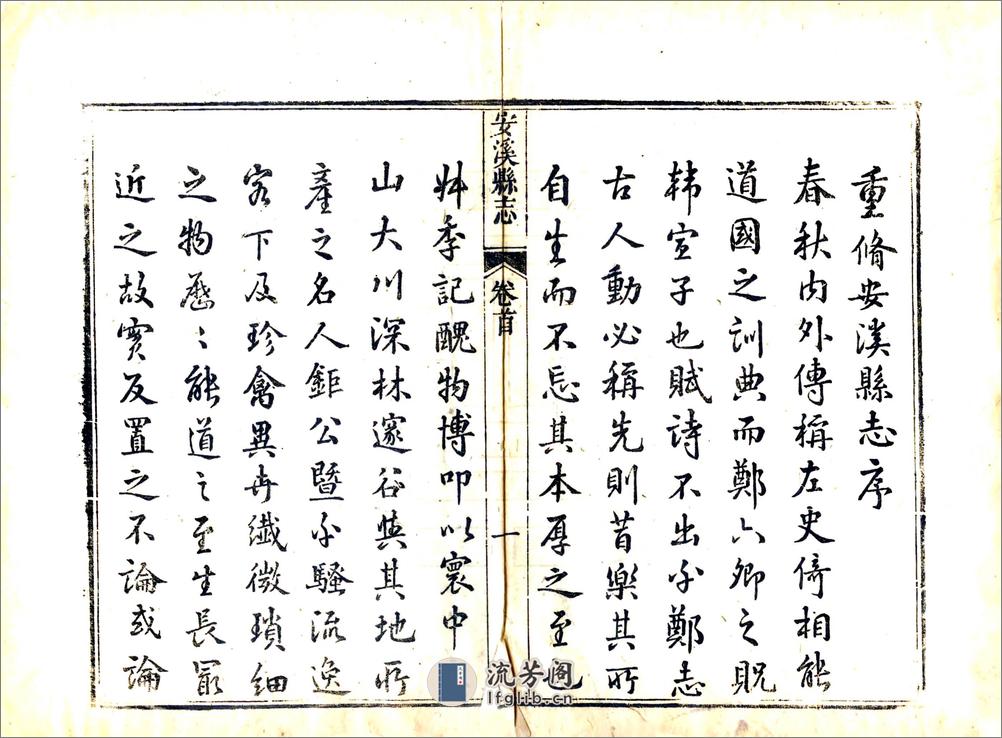 重脩安溪縣志序
春秋内外傳稱左史倚相能
道國之訓典而鄭六卿之貺
韩宣子也賦詩不出乎鄭志
古人動必稱先則昔樂其所
自生而不忘其本厚之至也
安溪縣志
卷首
一
季記醜物博叩以寰中
山大川深林邃谷與其地所
產之名人鉅公暨乎騷流逸
客下及珍禽異卉纖微瑣細
之物歷〻能道之至生長最
近之故實反置之不論或論
流芳阁
lfglib.cn